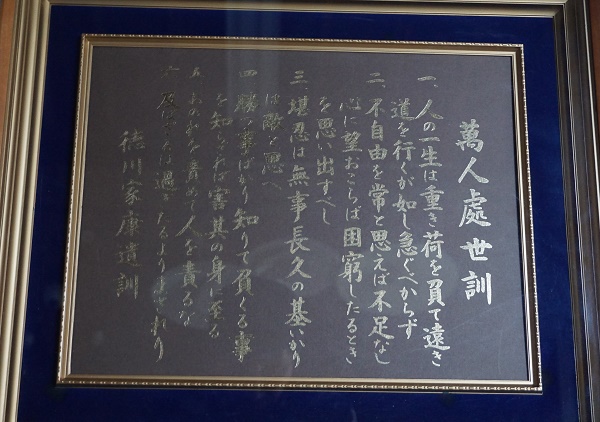 萬人處世訓
一、人の一生は重き荷を負て遠き
道を行くが如し急ぐべからず
二、不自由を常と思えば不足なし
心に望おこらば困窮したるとき
を思い出すべし
三、堪忍は無事長久の基いかり
は敵と思へ
四、勝つ事ばかり知りて負くる事
を知らざれば害其の身に至る
五、おのれを責めて人を責るな
六、及ばざるは過ぎたるよりまされり
徳川家康遺訓